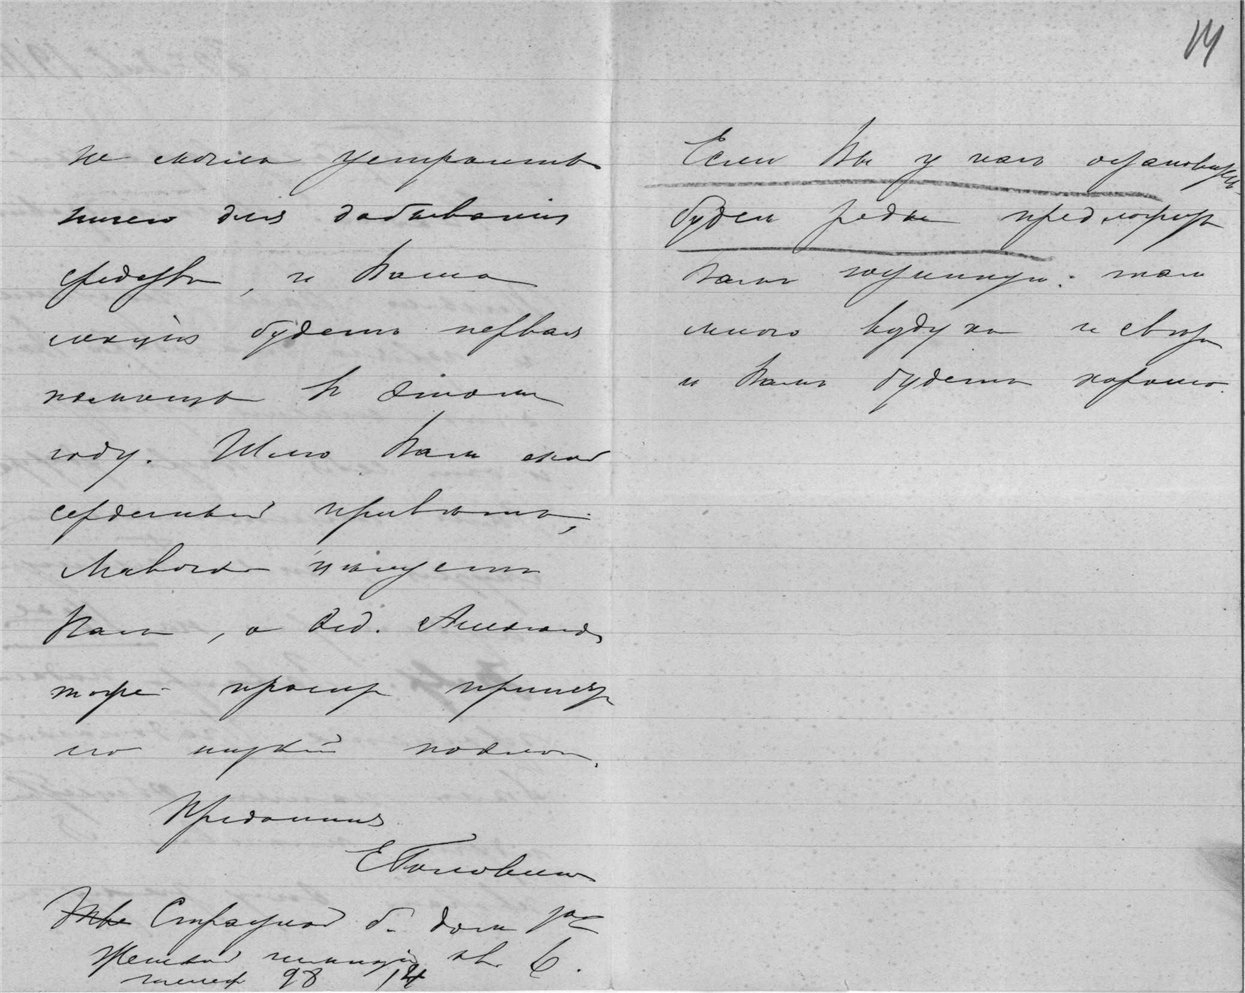 не могла устроить
ничего для добывания
средствъ, и Ваша
лекція будетъ первая
помощь въ этомъ
году. Шлю Вамъ мой
сердечный привѣтъ,
цѣлуетъ
Васъ, а Ѳед.
проситъ принять
его низкій поклонъ.
Преданная
Е Головина
Страстной б. домъ 1ой
Женской гимназіи кв. 6.
телеф 98 14
14
Если Вы у насъ остановитесь
будемъ рады предложить
Вамъ гостинную: тамъ
много воздуха и свѣта
и Вамъ будетъ хорошо.